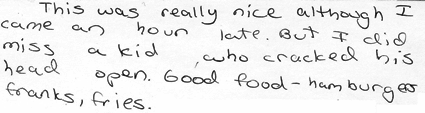 This was really nice although I
came an hour late. But I did
miss a kid, who cracked his
head open. Good food - hamburgers
franks, fries.